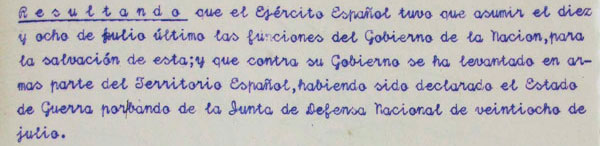 Resultando que el Ejército Español tuvo que asumir el diez
y ocho de julio último las funciones del Gobierno de la Nacion,para
la salvación de esta;y que contra su Gobierno se ha levantado en ar-
mas parte del Territorio Español,habiendo sido declarado el Estado
de Guerra por bando de la Junta de Defensa Nacional de veintiocho de
julio.